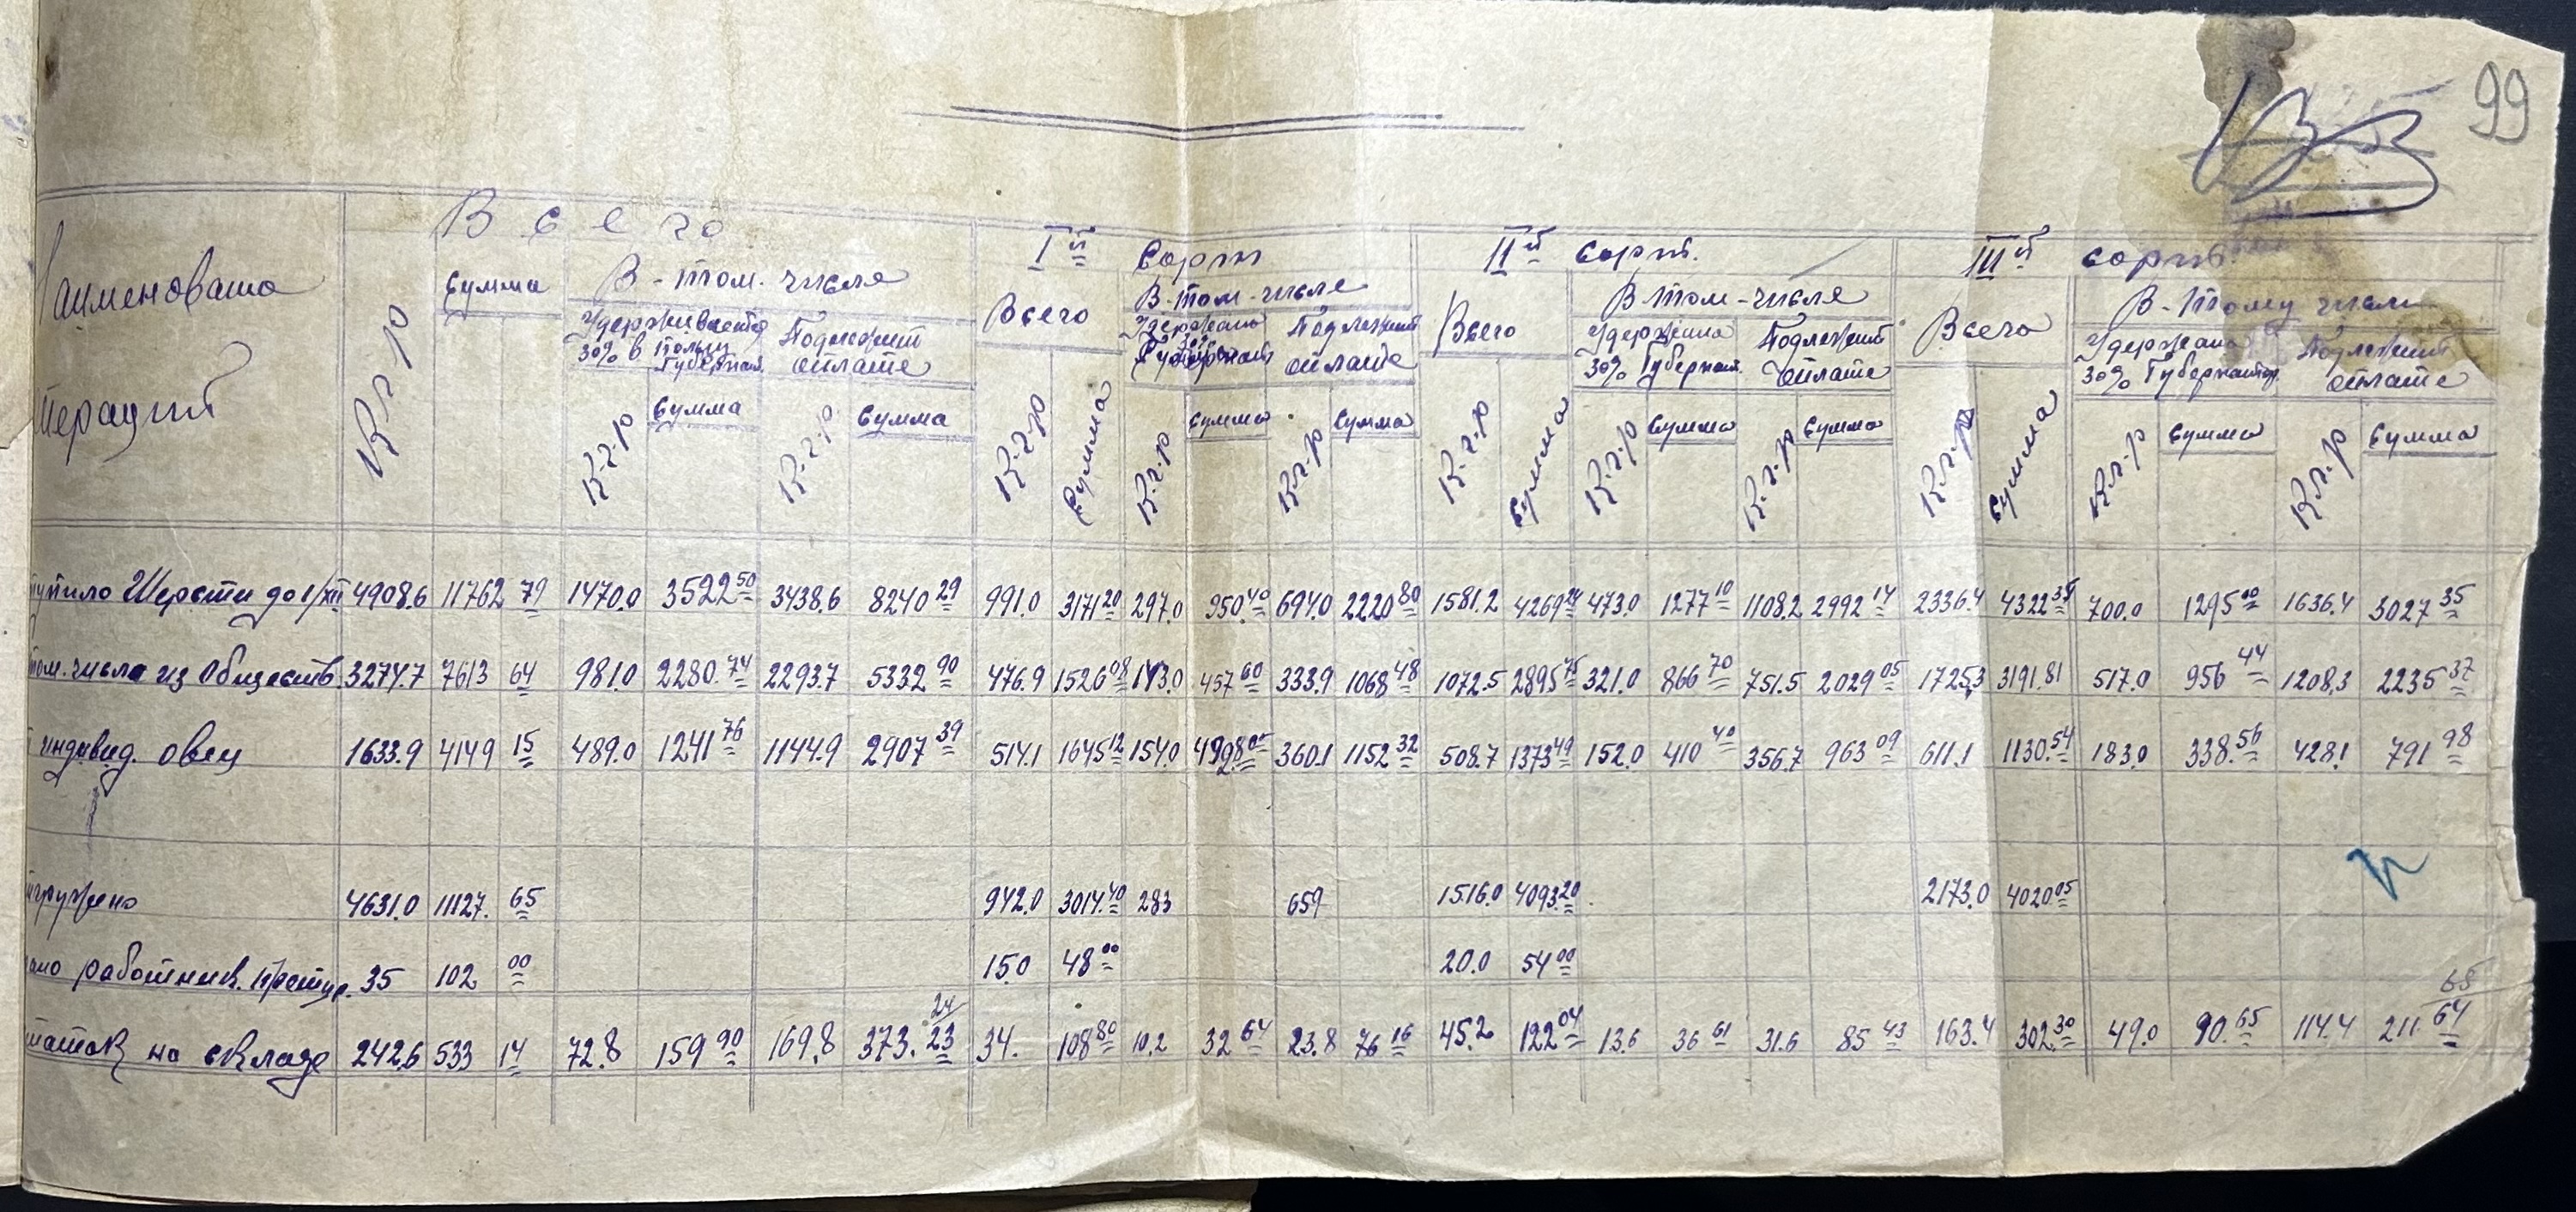 99
Всего
Iй Сорт
IIй сорт.
IIIй сорт.
Наименована
Операций
К-г-р
Сумма
В-том. числе
Удерживается 30% в пользу Губернат.
Подлежит оплате
К-г-р
Сумма
К-г-р
Сумма
Всего
В-том-числе
Удержано 30%
Подлежит оплате
К-г-р
Сумма
К-г-р
Сумма
К-г-р
Сумма
Всего
В-том-числе
Удержана 30% Губернат.
Подлежит оплате
К-г-р
Сумма
К-г-р
Сумма
К-г-р
Сумма
Всего
В-тому числе
Удержана 30% Губернатор
Подлежит оплате
К-г-р
Сумма
К-г-р
Сумма
К-г-р
Сумма
тупило Шерсти до 1/XII 4908.6 11762 79 1470.0 3522 50 3438.6 8240 29 991.0 3171 20 297.0 950.40 694.0 2220 80 1581.2 4269 24 473.0 1277 10 1108.2 2992 14 2336.4 4322 35 700.0 1295 00 1636.4 3027 35
том. числа из Обществ. 3274.7 7613 64 981.0 2280.74 2293.7 5332 90 476.9 1526 08 143.0 457 60 333.9 1068 48 1072.5 2895 75 321.0 866 70 751.5 2029 05 1725.3 3191.81 517.0 956 44 1208.3 2235 37
индивид. овец 1633.9 4149 15 489.0 1241 76 1144.9 2907 39 514.1 1645 12 154.0 360.1 1152 32 508.7 1373 49 152.0 410 40 356.7 963 09 611.1 1130.54 183.0 338.56 428.1 791 98
тгружено 4631.0 11127. 65 942.0 3014.40 283 659 1516.0 4093.20 2173.0 4020 05
ано работник. 35 102 00 15.0 48 00 20.0 54 00
24
65
таток на складе 242.6 533 14 72.8 159 90 169.8 373. 23 34. 108 80 10.2 32 64 23.8 76 16 45.2 122 04 13.6 36 61 31.6 85 43 163.4 302.30 49.0 90.65 114.4 211. 64